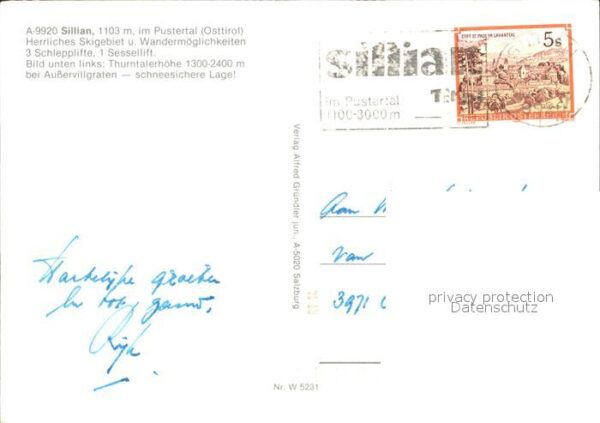 A-9920 Sillian, 1103 m, im Pustertal (Osttirol)
Herrliches Skigebiet u. Wandermöglichkeiten
3 Schlepplifte, 1 Sessellift.
Bild unten links: Thurntalerhöhe 1300-2400 m
bei Außervillgraten — schneesichere Lage!
Sillian
im Pustertal
1100-3000 m
5s
STIFT ST. PAUL IM LAVANTTAL
REPUBLIK ÖSTERREICH
Verlag Alfred Gründler jun., A-5020 Salzburg
Hartelijke groeten
Aan
van
3971
privacy protection
Datenschutz
Nr. W 5231